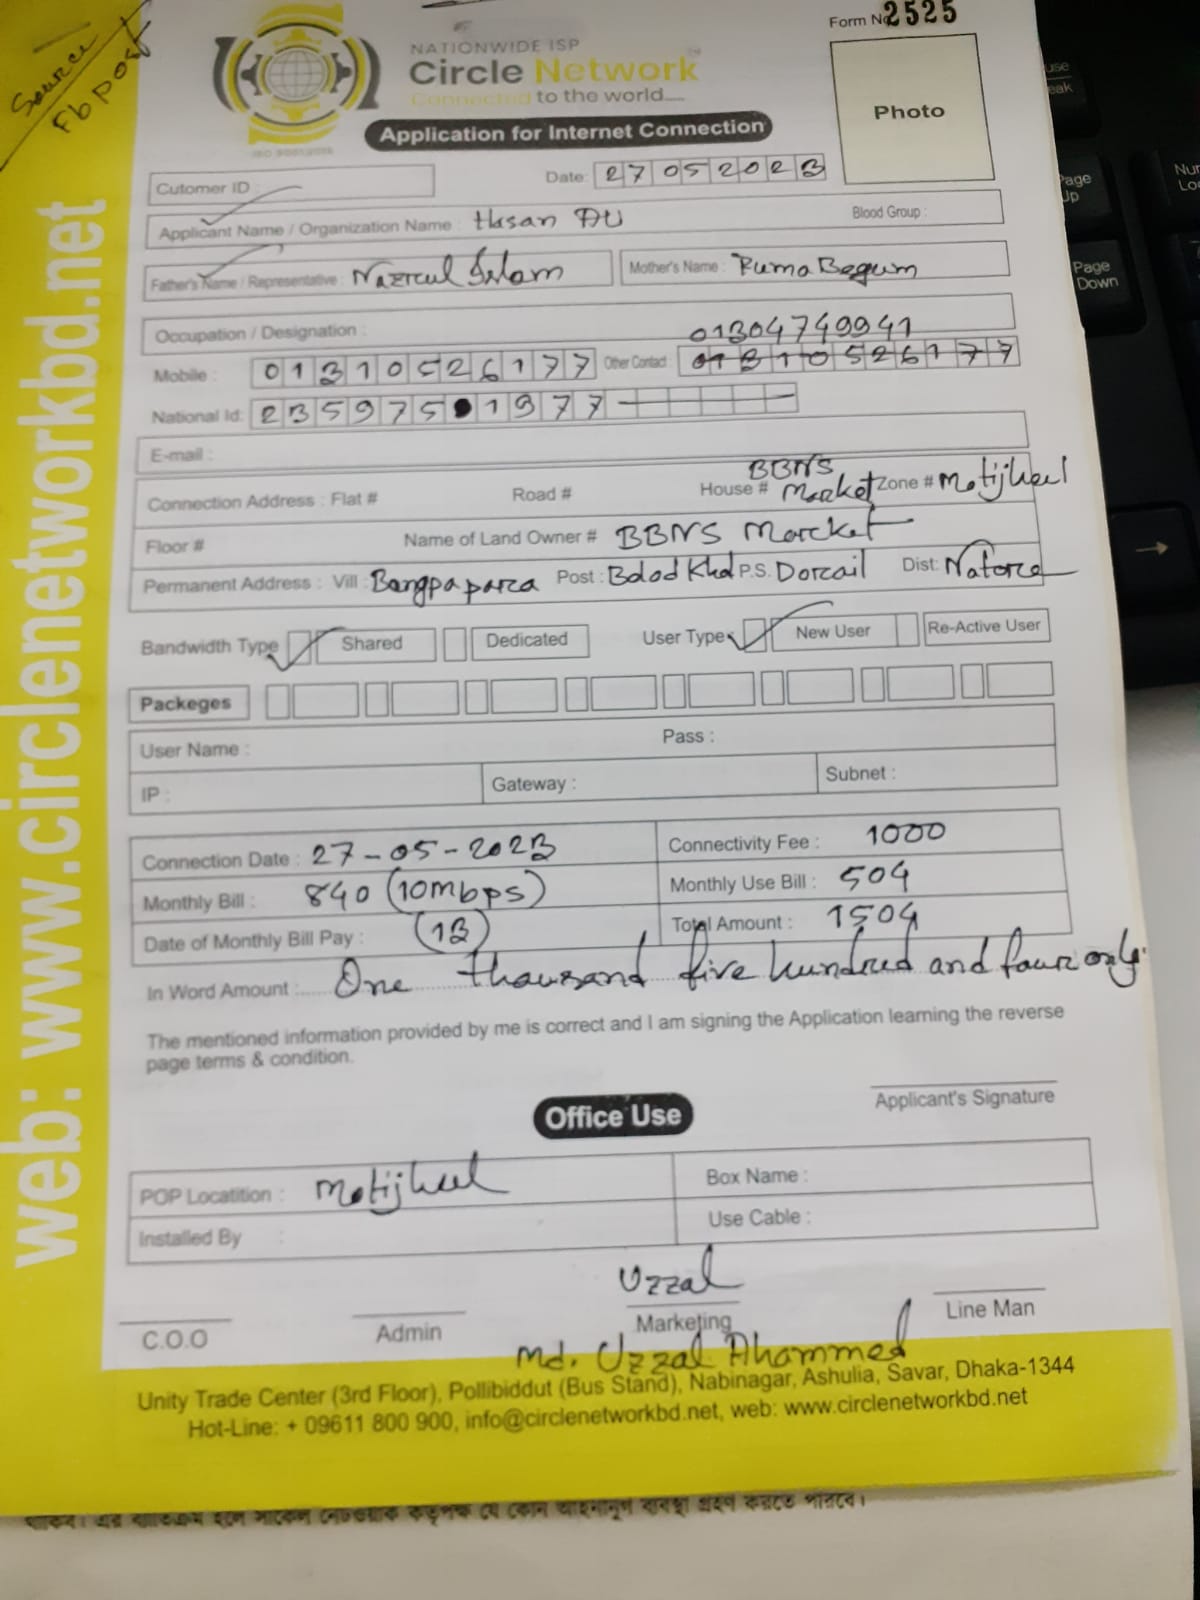 Source
Fb post
Form No 2525
NATIONWIDE ISP
Circle Network
Connected to the world.....
Photo
Application for Internet Connection
Cutomer ID :
Date: 27052023
Applicant Name / Organization Name : Hasan Ali
Blood Group :
Father's Name / Representative : Nazrul Islam
Mother's Name : Ruma Begum
Occupation / Designation :
01304749941
Mobile : 01310526177 Other Contact : 01310526177
National Id: 235975 1977
E-mail :
BBNS
Connection Address : Flat # Road # House # Market Zone # Motijheel
Floor # Name of Land Owner # BBNS Marcket
Permanent Address : Vill : Bangpaparca Post : P.S. Dist: Natore
Bandwidth Type Shared Dedicated User Type New User Re-Active User
Packeges
User Name : Pass :
IP : Gateway : Subnet :
Connection Date : 27-05-2023 Connectivity Fee : 1000
Monthly Bill : 840 (10mbps) Monthly Use Bill : 504
Date of Monthly Bill Pay : (13) Total Amount : 1504
In Word Amount :...... One thousand five hundred and four only.
The mentioned information provided by me is correct and I am signing the Application learning the reverse
page terms & condition.
Applicant's Signature
Office Use
POP Locatition : Motijheel
Box Name :
Installed By :
Use Cable :
Uzzal
C.O.O Admin Marketing Line Man
Md. Uzzal Ahammed
Unity Trade Center (3rd Floor), Pollibiddut (Bus Stand), Nabinagar, Ashulia, Savar, Dhaka-1344
Hot-Line: + 09611 800 900, info@circlenetworkbd.net, web: www.circlenetworkbd.net
web: www.circlenetworkbd.net
Page
Up
Page
Down